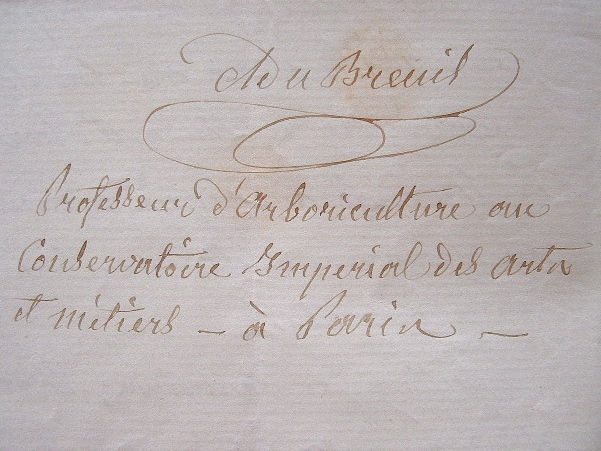 A Du Breuil
Professeur d'Arboriculture au
Conservatoire Imperial des arts
et métiers - à Paris -